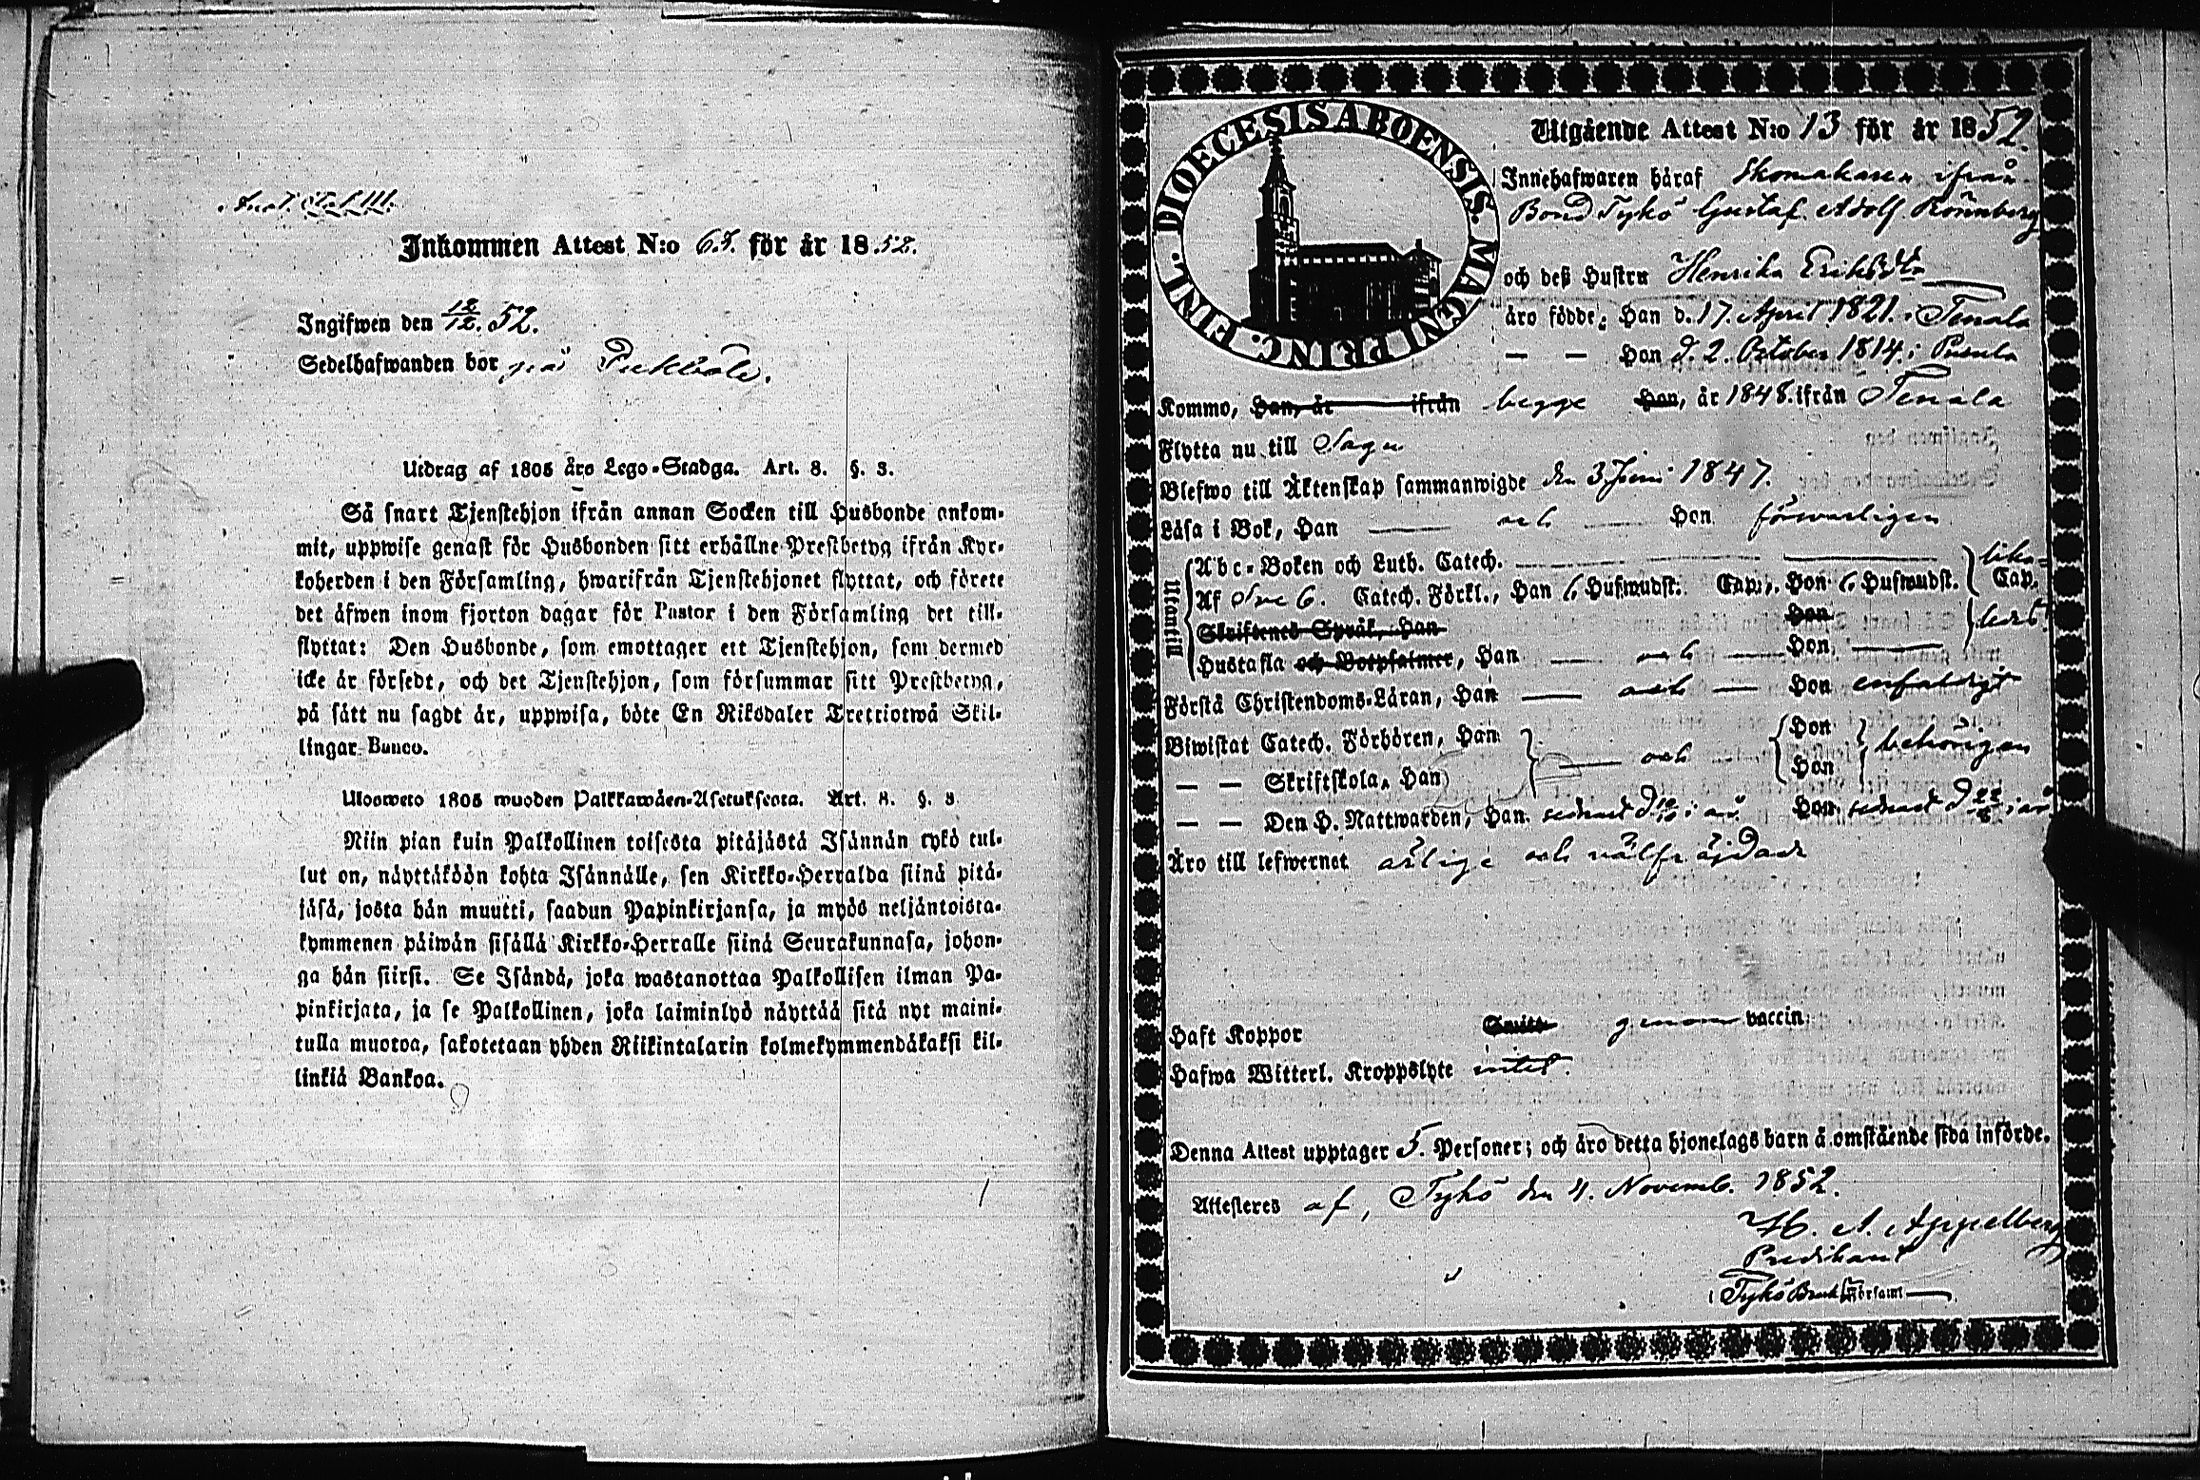 Inkommen Attest N:o 67. för år 1852.
Ingifwen den 12/12. 52.
Sedelhafwanden bor på
Utdrag af 1805 års Lego-Stadga. Art. 8. §. 3.
Så snart Tjenstehjon ifrån annan Socken till Husbonde ankom-
mit, uppwise genast för Husbonden sitt erhållne Prestbetyg ifrån Kyr-
koherden i den Församling, hwarifrån Tjenstehjonet flyttat, och förete
det äfwen inom fjorton dagar för Pastor i den Församling det till-
flyttat: Den Husbonde, som emottager ett Tjenstehjon, som dermed
icke är försedt, och det Tjenstehjon, som försummar sitt Prestbetyg,
på sätt nu sagdt är, uppwisa, böte En Riksdaler Trettiotwå Skil-
lingar Banco.
Ulosweto 1805 wuoden Palkkawäen-Asetuksesta. Art. 8. §. 3
Niin pian kuin Palkollinen toisesta pitäjästä Isännän tykö tul-
lut on, näyttäköön kohta Isännälle, sen Kirkko-Herralda siinä pitä-
jäsä, josta hän muutti, saadun Papinkirjansa, ja myös neljäntoista-
kymmenen päiwän sisällä Kirkko-Herralle siinä Seurakunnasa, johon-
ga hän siirsi. Se Isändä, joka wastanottaa Palkollisen ilman Pa-
pinkirjata, ja se Palkollinen, joka laiminlyö näyttää sitä nyt maini-
tulla muotoa, sakotetaan yhden Riikintalarin kolmekymmendäkaksi kil-
linkiä Bankoa.
DIOECESIS ABOENSIS. MAGNI PRINC. FINL.
Utgående Attest N:o 13 för år 1852.
Innehafwaren häraf Skomakaren ifrån
Bond Tykö Gustaf Adolf Rönnberg
och deß Hustru Henrika Eriksdtr
äro födde, Han d. 17. April 1821. i Tenala
— — Hon d. 2. October 1814. i Pusula
Kommo, Han, år ifrån begge Hon, år 1848. ifrån Tenala
Flytta nu till Sagu
Blefwo till Äktenskap sammanwigde den 3 Juni 1847.
Läsa i Bok, Han — och — Hon försvarligen
Utantill
Abc-Boken och Luth. Catech.
Af Sve 6. Catech. Förkl., Han 6 Hufwudst. Cap., Hon 6 Hufwudst. Cap.
Skriftenes Språk, Han Hon
Hustafla och Botpsalmer, Han — och — Hon —
Förstå Christendoms-Läran, Han — och — Hon enfaldigt
Biwistat Catech. Förhören, Han — och Hon behörigen
— — Skriftskola, Han Hon
— — Den H. Nattwarden, Han senast d. i år Hon senast d i år
Äro till lefwernet ärlige och välfräjdade
Haft Koppor Smitt genom vaccin
Hafwa Witterl. Kroppslyte intet.
Denna Attest upptager 5. Personer; och äro detta hjonelags barn å omstående sida införde.
Attesteres af, Tykö den 4. Novemb. 1852.
H. A. Appelberg
Predikant
i Tykö Bruks Församl